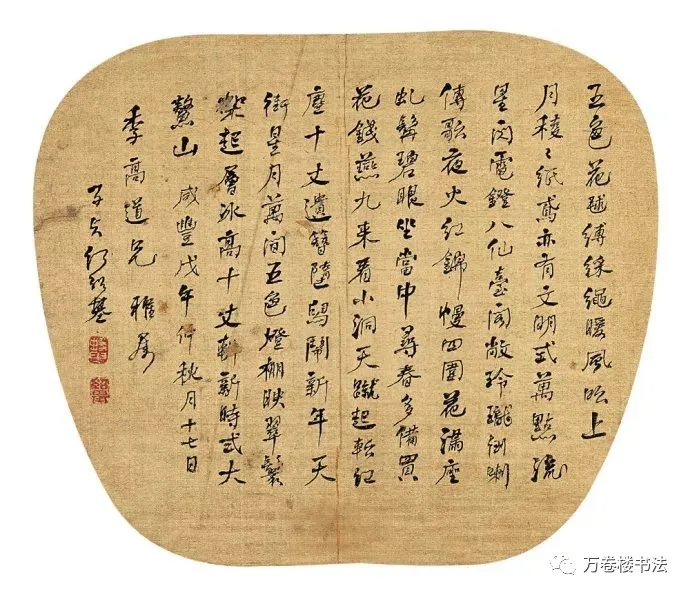 五色花毬縛綵繩暖風吹上
月稜〻紙鳶亦有文明式萬點流
星閃電鐙八仙臺閣敞玲瓏倒喇
傳歌夜火紅錦幔四圍花滿座
虬髯碧眼坐當中尋春多備買
花錢燕九来看小洞天蹴起軟紅
塵十丈遺簪隨舄鬧新年天
街星月萬間五色燈棚映翠鬟
架起層冰高十丈斬新時式大
鰲山 咸豐戊午仲秋月十七日
季高道兄雅屬
子貞何紹基
万卷楼书法